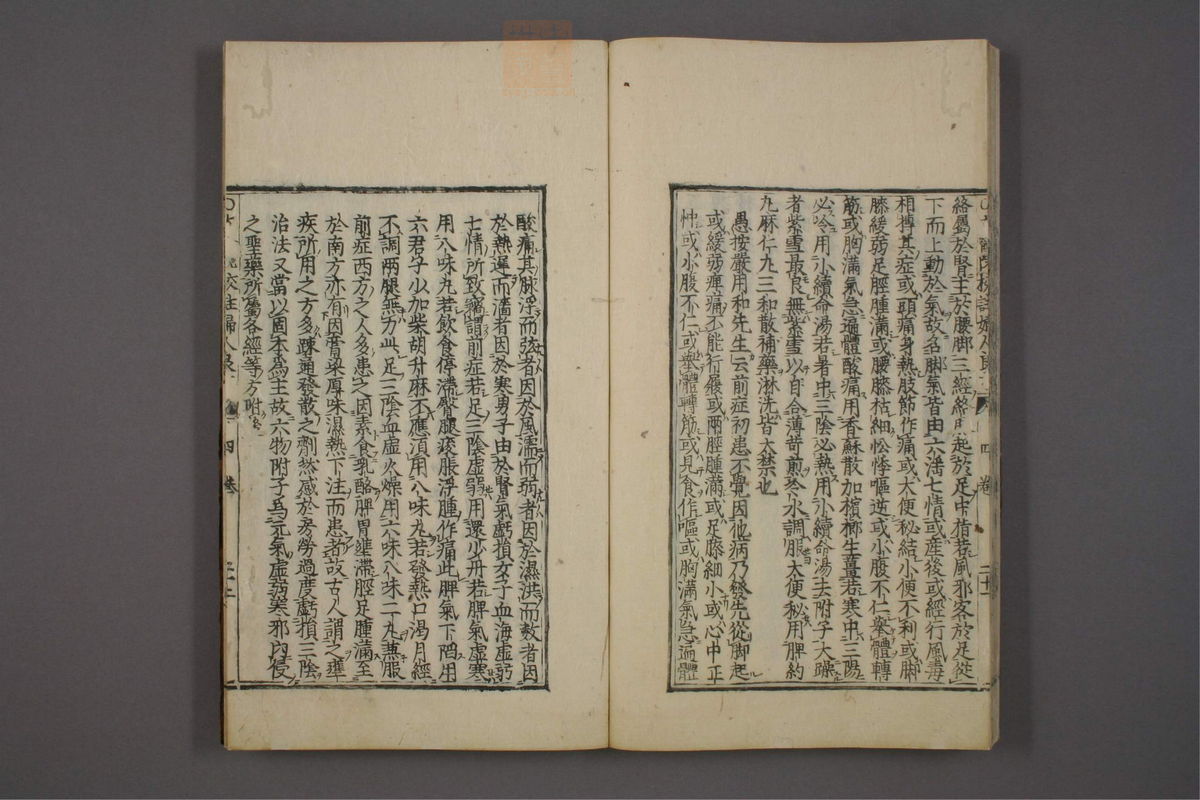 絡屬於腎主於腰脚三經絡起於足中指若風邪客於足從
下而上動於氣故名脚氣皆由六淫七情或產後或經行風毒
相搏其症或頭痛身熱肢節作痛或大便秘結小便不利或脚
膝緩弱足脛腫滿或腰膝枯細忪悸嘔逆或小腹不仁擧體轉
筋或胸滿氣急遍體酸痛用香蘇散加檳榔生薑若寒中三陽
必冷用小續命湯若暑中三陰必熱用小續命湯去附子大躁
者紫雪最良無紫雪以百合薄苛煎冷水調服大便秘用脾約
九麻仁九三和散補藥淋洗皆大禁也
愚按嚴用和先生云前症初患不覺因他病乃發先從脚起
或緩弱痺痛不能行履或兩脛腫滿或足膝細小或心中正
忡或小腹不仁或擧體轉筋或見食作嘔或胸滿氣急遍體
酸痛其脉浮而弦者因於風濡而弱者因於濕洪而數者因
於熱遲而濇者因於寒男子由於腎氣虧損女子血海虛弱
七情所致竊謂前症若足三陰虛弱用還少丹若脾氣虛寒
用八味丸若飲食停滯臀腿痠脹浮腫作痛此脾氣下陷用
六君子少加柴胡升麻不應須用八味丸若發熱口渴月經
不調兩腿無力此足三陰血虛火燥用六味八味二丸兼服
前症西方之人多患之因素食乳酪脾胃壅滯脛足腫滿至
於南方亦有因膏梁厚味濕熱下注而患者故古人謂之壅
疾所用之方多疎通發散之劑然感於房勞過度虧損三陰
治法又當以固本爲主故六物附子爲元氣虛弱寒邪內侵
之聖藥所屬各經等方附後
校註婦人良
四卷